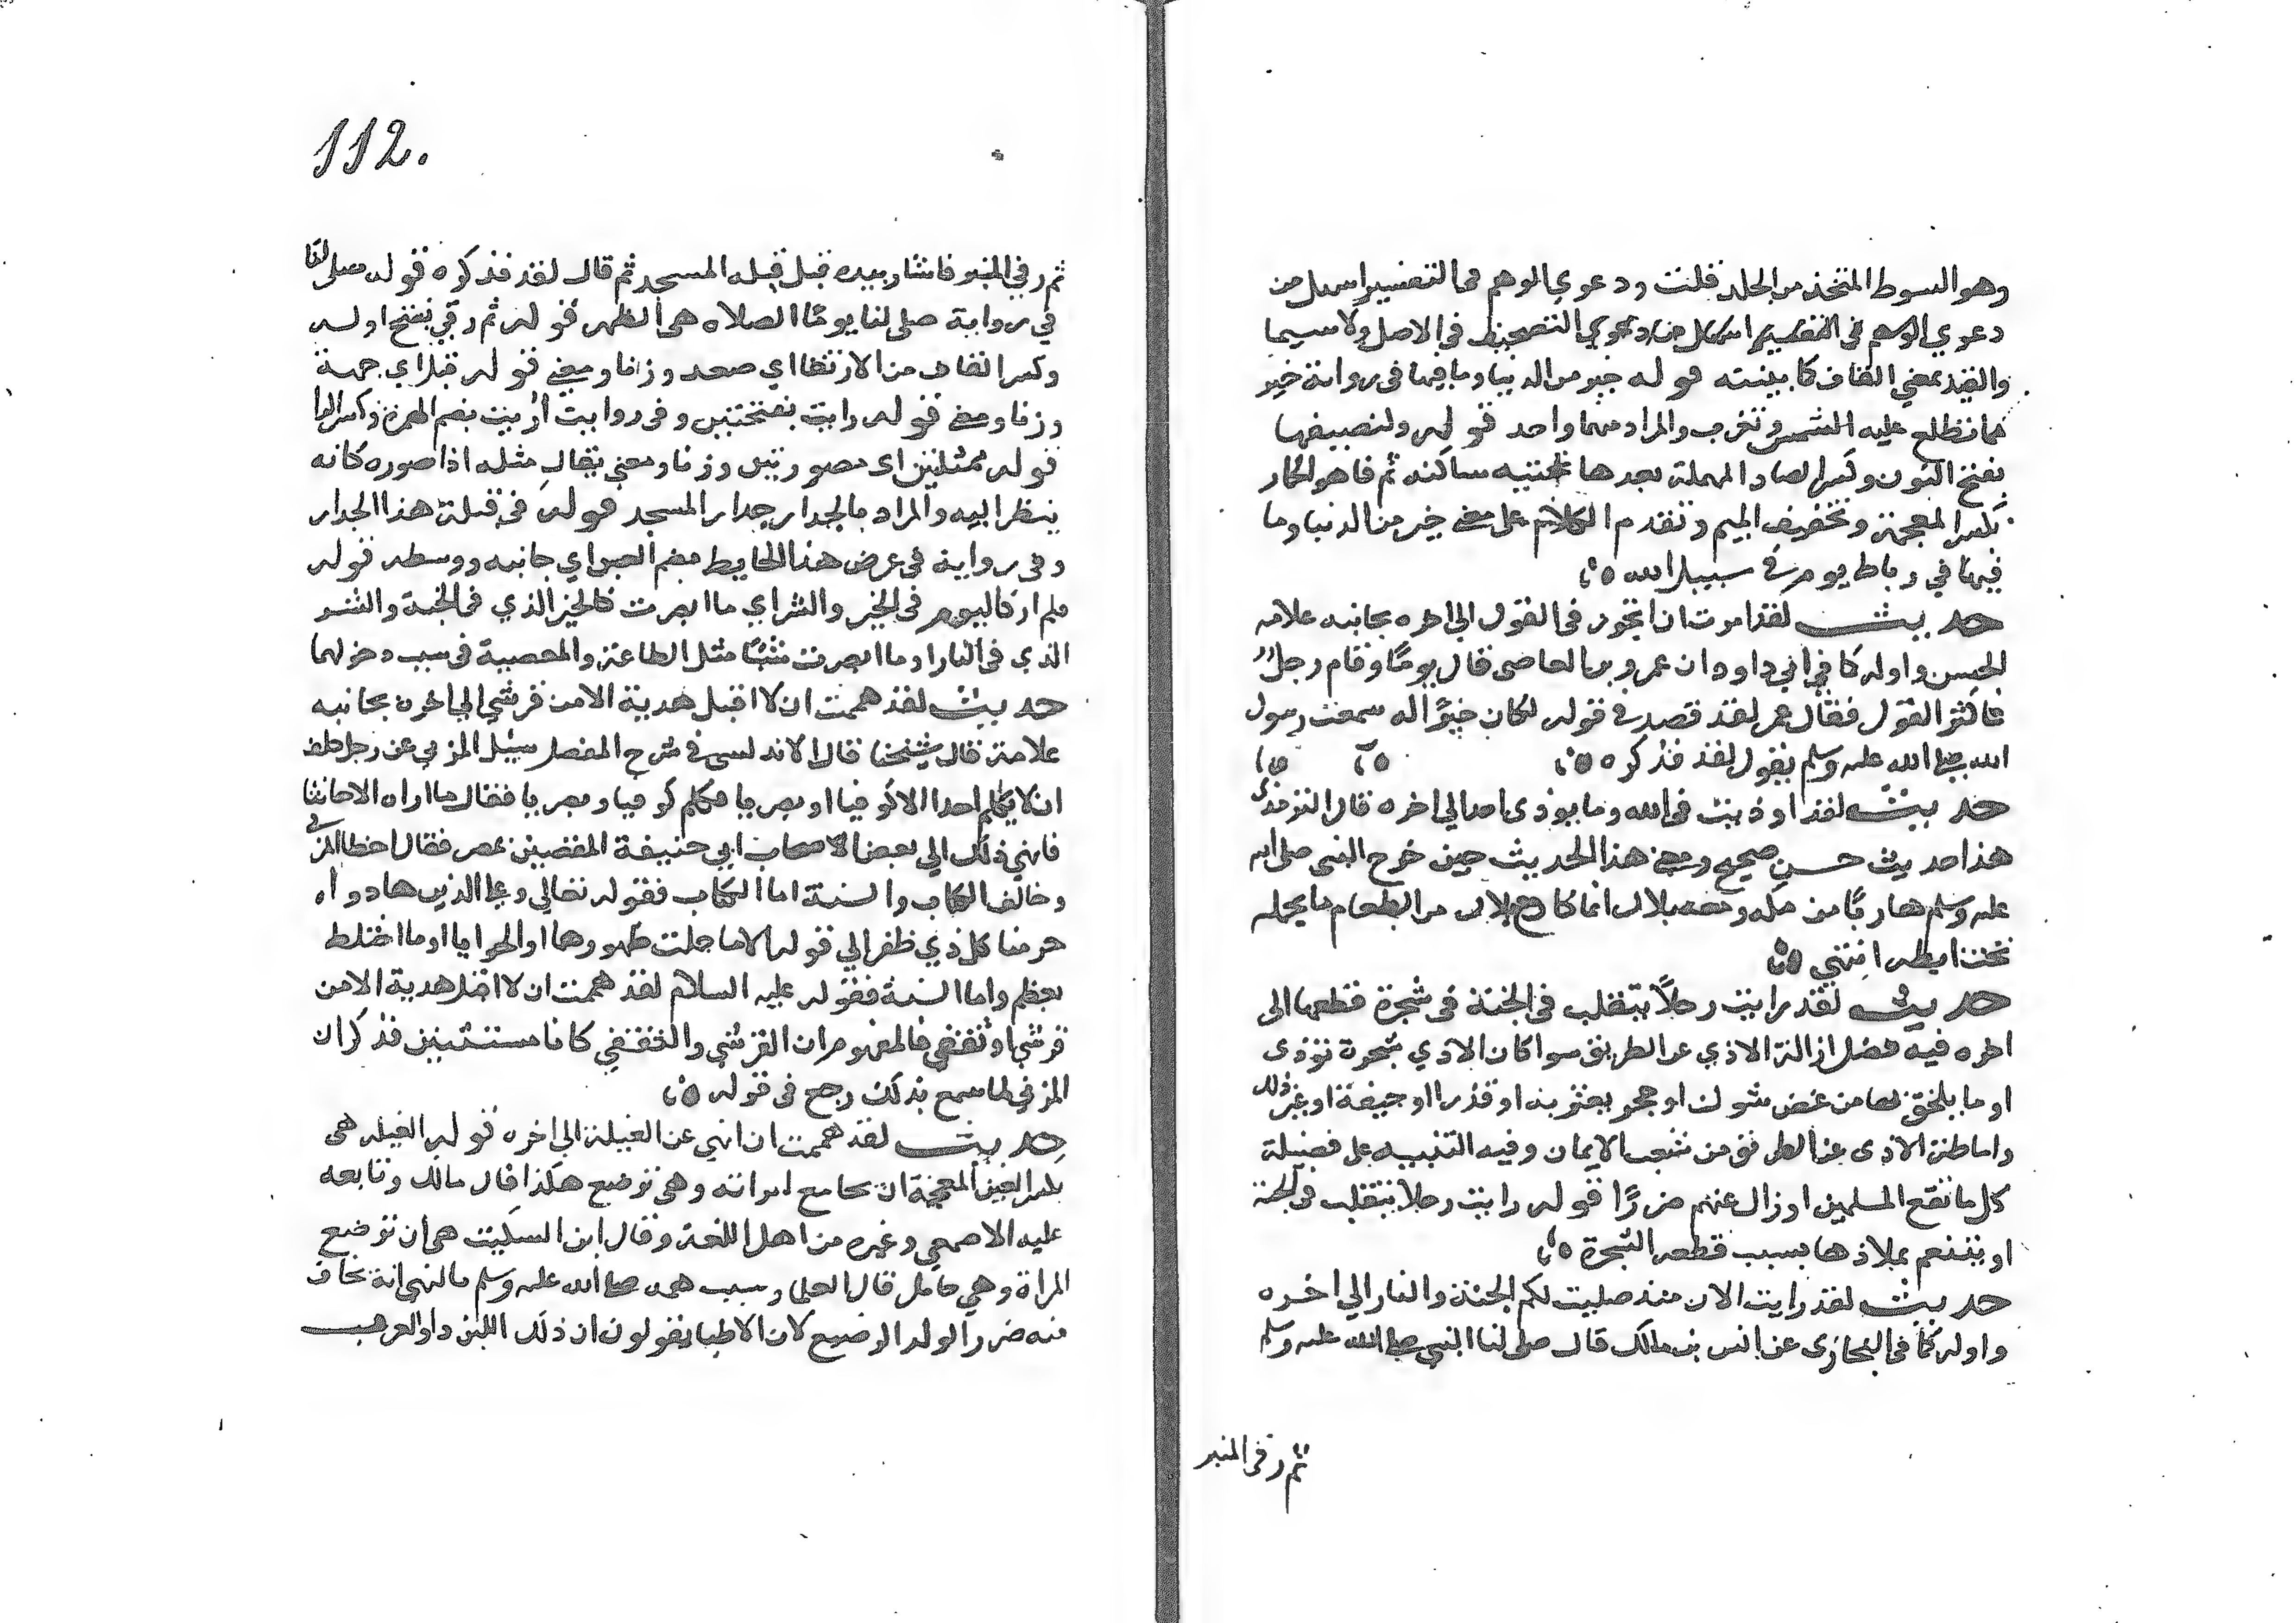 وهو السوط المتخذ من الجلد قلت ودعوي الوهم في التفسير اسهل من
دعوي الوهم في التفسير اسهل من دعوي التصحيف في الاصل ولا سيما
والقيد بمعني القاف كما بينته قوله خير من الدنيا وما فيها في رواية خير
مما تطلع عليه الشمس وتغرب والمراد منهما واحد قوله ولنصيفها
بفتح النون وكسر الصاد المهملة بعدها تحتيه ساكنه ثم فا هو الخمار
بكسر المعجمة وتخفيف الميم وتقدم الكلام على معني خير من الدنيا وما
فيها في رباط يوم في سبيل الله
حديث لقد امرت ان اتجوز في القول الي اخره بجانبه علامه
الحسن واوله كما في ابي داود ان عمرو بن العاصي قال يومًا وقام رجل
فاكثر القول فقال عمر لقد قصد في قوله لكان خيرًا له سمعت رسول
الله صلى الله عليه وسلم يقول لقد فذكره
حديث لقد اوذيت في الله وما يوذى احد الي اخره قال الترمذي
هذا حديث حسن صحيح ومعني هذا الحديث حين خرج النبي صلى الله
عليه وسلم هاربًا من مكه ومعه بلال انما كان مع بلال من الطعام ما يحمله
تحت ابطه انتهي
حديث لقد رايت رجلًا يتقلب في الجنة في شجرة قطعها الى
اخره فيه فضل ازالة الاذي عن الطريق سوا كان الاذي شجرة توذى
او ما يلحق بها من غصن شوك او حجر يعثر به او قذرا او جيفة او غير ذلك
واماطة الاذى عن الطريق من شعب الايمان وفيه التنبيه على فضيلة
كل ما نفع المسلمين او زال عنهم ضررًا قوله رايت رجلا يتقلب في الجنة
او يتنعم بملاذها بسبب قطعه الشجرة
حديث لقد رايت الان منذ صليت لكم الجنة والنار الي اخره
واوله كما في البخاري عن انس بن مالك قال صلى لنا النبي صلى الله عليه وسلم
ثم رقي المنبر
112.
ثم رقي المنبر فاشار بيده قبل قبلة المسجد ثم قال لقد فذكره قوله صلى لنا
في رواية صلى لنا يومًا الصلاه هي الظهر قوله ثم رقي بفتح اوله
وكسر القاف من الارتقا اي صعد وزنا ومعني قوله قبل اي جهة
وزنا ومعني قوله رايت بفتحتين وفي روايت اُريت بضم الهمزة وكسر الرا
قوله ممثلتين اي مصورتين وزنا ومعني يقال مثله اذا صوره كانه
ينظر اليه والمراد بالجدار جدار المسجد قوله في قبلة هذا الجدار
وفي رواية في عرض هذا الحايط بضم العين اي جانبه ووسطه قوله
فلم ار كاليوم في الخير والشر اي ما ابصرت كالخير الذي في الجنة والشر
الذي في النار او ما ابصرت شيئًا مثل الطاعة والمعصية في سبب دخولهما
حديث لقد هممت ان لا اقبل هدية الا من قرشي الي اخره بجانبه
علامة قال شيخنا قال الاندلسى في شرح المفصل سيل المزني عن رجل حلف
ان لا يكلم احدا الا كوفيا او بصريا فكلم كوفيا وبصريا فقال ما اراه الا حانثا
فانهي ذلك الي بعض اصحاب ابي حنيفة المقضيين بمصر فقال اخطا المزني
وخالف الكتاب والسنة اما الكتاب فقوله تعالي وعلى الذين هادوا
حرمنا كل ذي ظفر الي قوله الا ما حملت ظهورهما او الحوايا او ما اختلط
بعظم واما السنة فقوله عليه السلام لقد هممت ان لا اقبل هدية الا من
قرشي او ثقفي فالمفهوم ان القرشي والثقفي كانا مستثنيين فذكر ان
المزني لما سمع بذلك رجع في قوله
حديث لقد هممت ان انهي عن الغيلة الي اخره قوله الغيله هى
بكسر الغين المعجمة ان يجامع امراته وهي ترضع هكذا قال مالك وتابعه
عليه الاصمعي وغيره من اهل اللغة وقال ابن السكيت هى ان ترضع
المراة وهي حامل قال العلما وسبب همه صلى الله عليه وسلم بالنهى انه يخاف
منه ضرر الولد الرضيع لان الاطبا يقولون ان ذلك اللبن داء والعرب